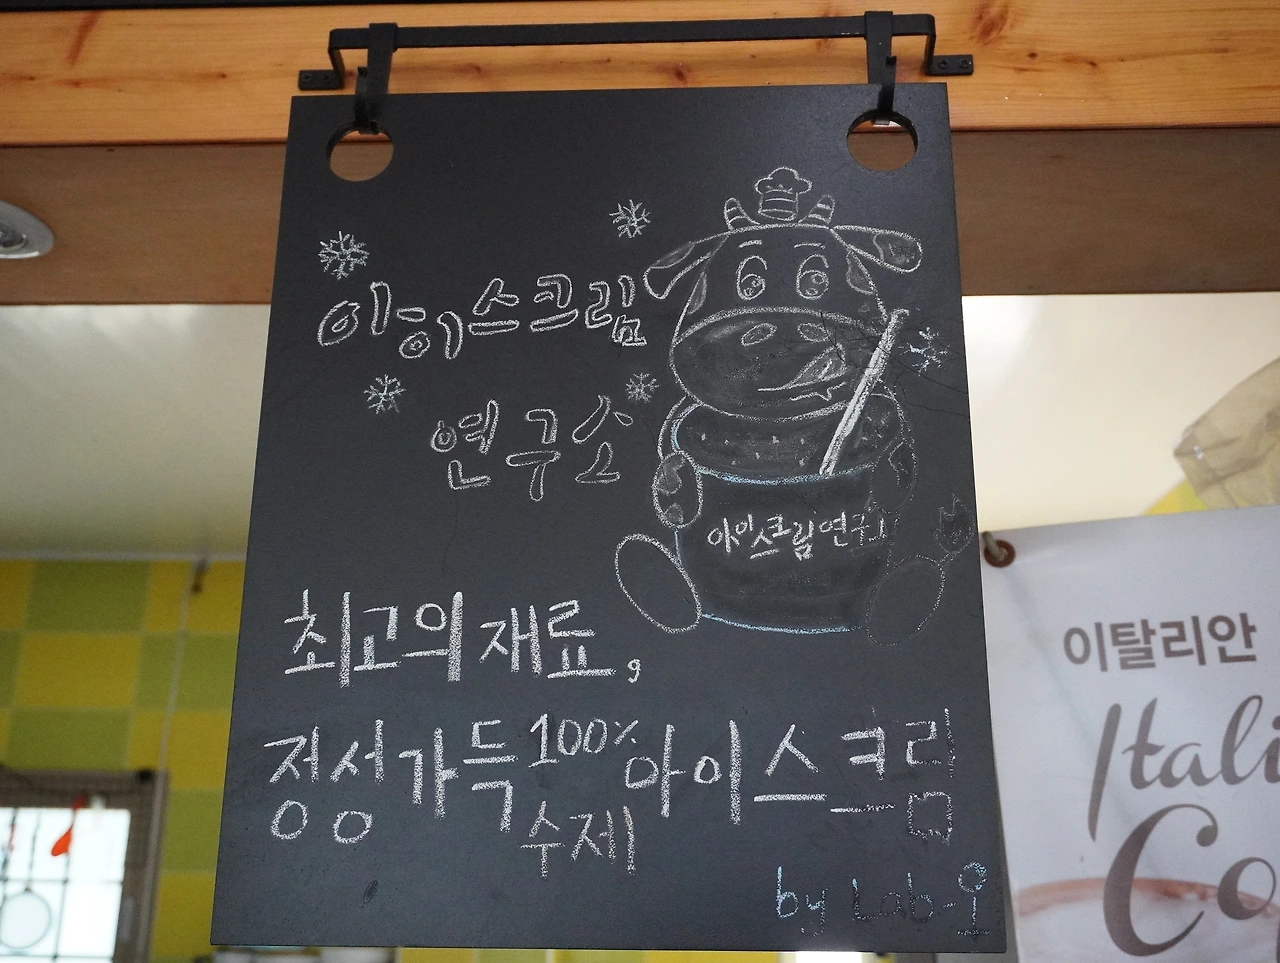 아이스크림
연구소
아이스크림연구소
최고의 재료,
정성가득 100% 수제 아이스크림
by Lab-i
이탈리안
Itali
Co